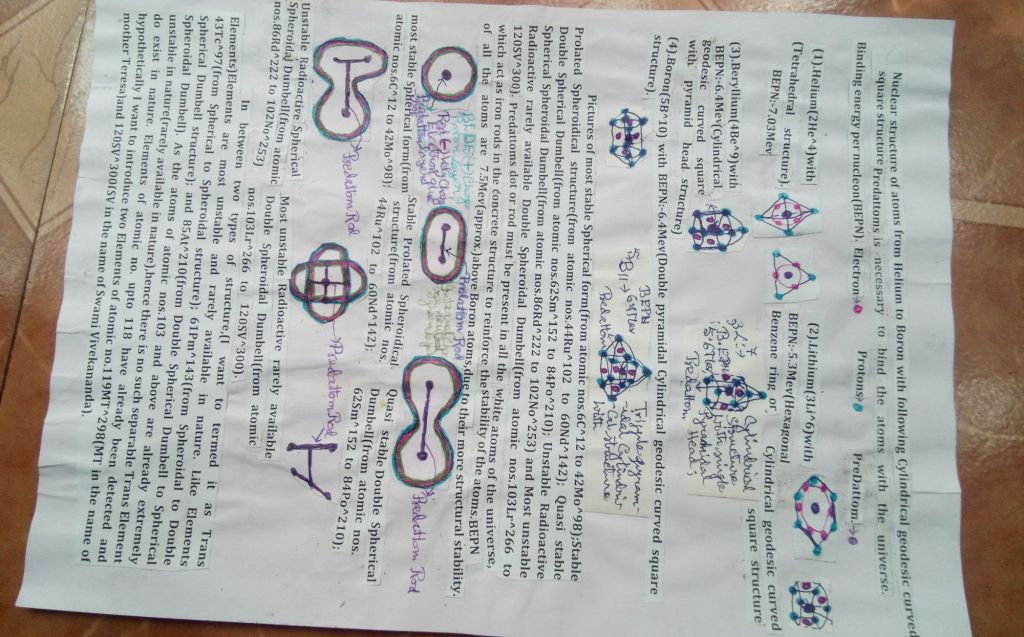 Nuclear structure of atoms from Helium to Boron with following Cylindrical geodesic curved
square structure Predattoms is necessary to bind the atoms with the universe.
Binding energy per nucleon(BEPN). Electron→ Protons→ PreDattom.→
(1).Helium(2He^4)with
(Tetrahedral structure).
BEPN:-7.03Mev
(2).Lithium(3Li^6)with
BEPN:-5.3Mev(Hexagonal
Benzene ring or
Cylindrical geodesic curved
square structure
(3).Beryllium(4Be^9)with
BEPN:-6.4Mev(Cylindrical
geodesic curved square
with pyramid head
structure)
3Li→7
B.EPN
5.6Mev
Cylindrical
structure
with single
Pyramidal
Head;
Predattom
(4).Boron(5B^10) with BEPN:-6.4Mev(Double pyramidal Cylindrical geodesic curved square
structure).
5B11→
BEPN
Predattom
with
structure
Pictures of most stable Spherical form(from atomic nos.6C^12 to 42Mo^98);Stable
Prolated Spheroidical structure(from atomic nos.44Ru^102 to 60Nd^142); Quasi stable
Double Spherical Dumbell(from atomic nos.62Sm^152 to 84Po^210); Unstable Radioactive
Spherical Spheroidal Dumbell(from atomic nos.86Rd^222 to 102No^253) and Most unstable
Radioactive rarely available Double Spheroidal Dumbell(from atomic nos.103Lr^266 to
120SV^300). Predattoms dot or rod must be present in all the white atoms of the universe,
which act as iron rods in the concrete structure to reinforce the stability of the atoms.BEPN
of all the atoms are 7.5Mev(approx.)above Boron atoms,due to their more structural stability.
Predattom Rod
Predattom Rod
most stable Spherical form(from
atomic nos.6C^12 to 42Mo^98);
Stable Prolated Spheroidical
structure(from atomic nos.
44Ru^102 to 60Nd^142);
Quasi stable Double Spherical
Dumbell(from atomic nos.
62Sm^152 to 84Po^210);
Predattom Rod
Predattom Rod
Unstable Radioactive Spherical
Spheroidal Dumbell(from atomic
nos.86Rd^222 to 102No^253)
Most unstable Radioactive rarely available
Double Spheroidal Dumbell(from atomic
nos.103Lr^266 to 120SV^300).
In between two types of structure,(I want to termed it as Trans
Elements)Elements are most unstable and rarely available in nature. Like Elements
43Tc^97(from Spherical to Spheroidal structure); 61Pm^143(from Spheroidal to Double
Spherical Dumbell structure); and 85At^210(from Double Spherical Dumbell to Spherical
Spheroidal Dumbell). As the atoms of atomic nos.103 and above are already extremely
unstable in nature(rarely available in nature),hence there is no such separable Trans Element
do exist in nature. Elements of atomic no. upto 118 have already been detected and
hypothetically I want to introduce two Elements of atomic no.119MT^298(MT in the name of
mother Teresa)and 120SV^300(SV in the name of Swami Vivekananda).